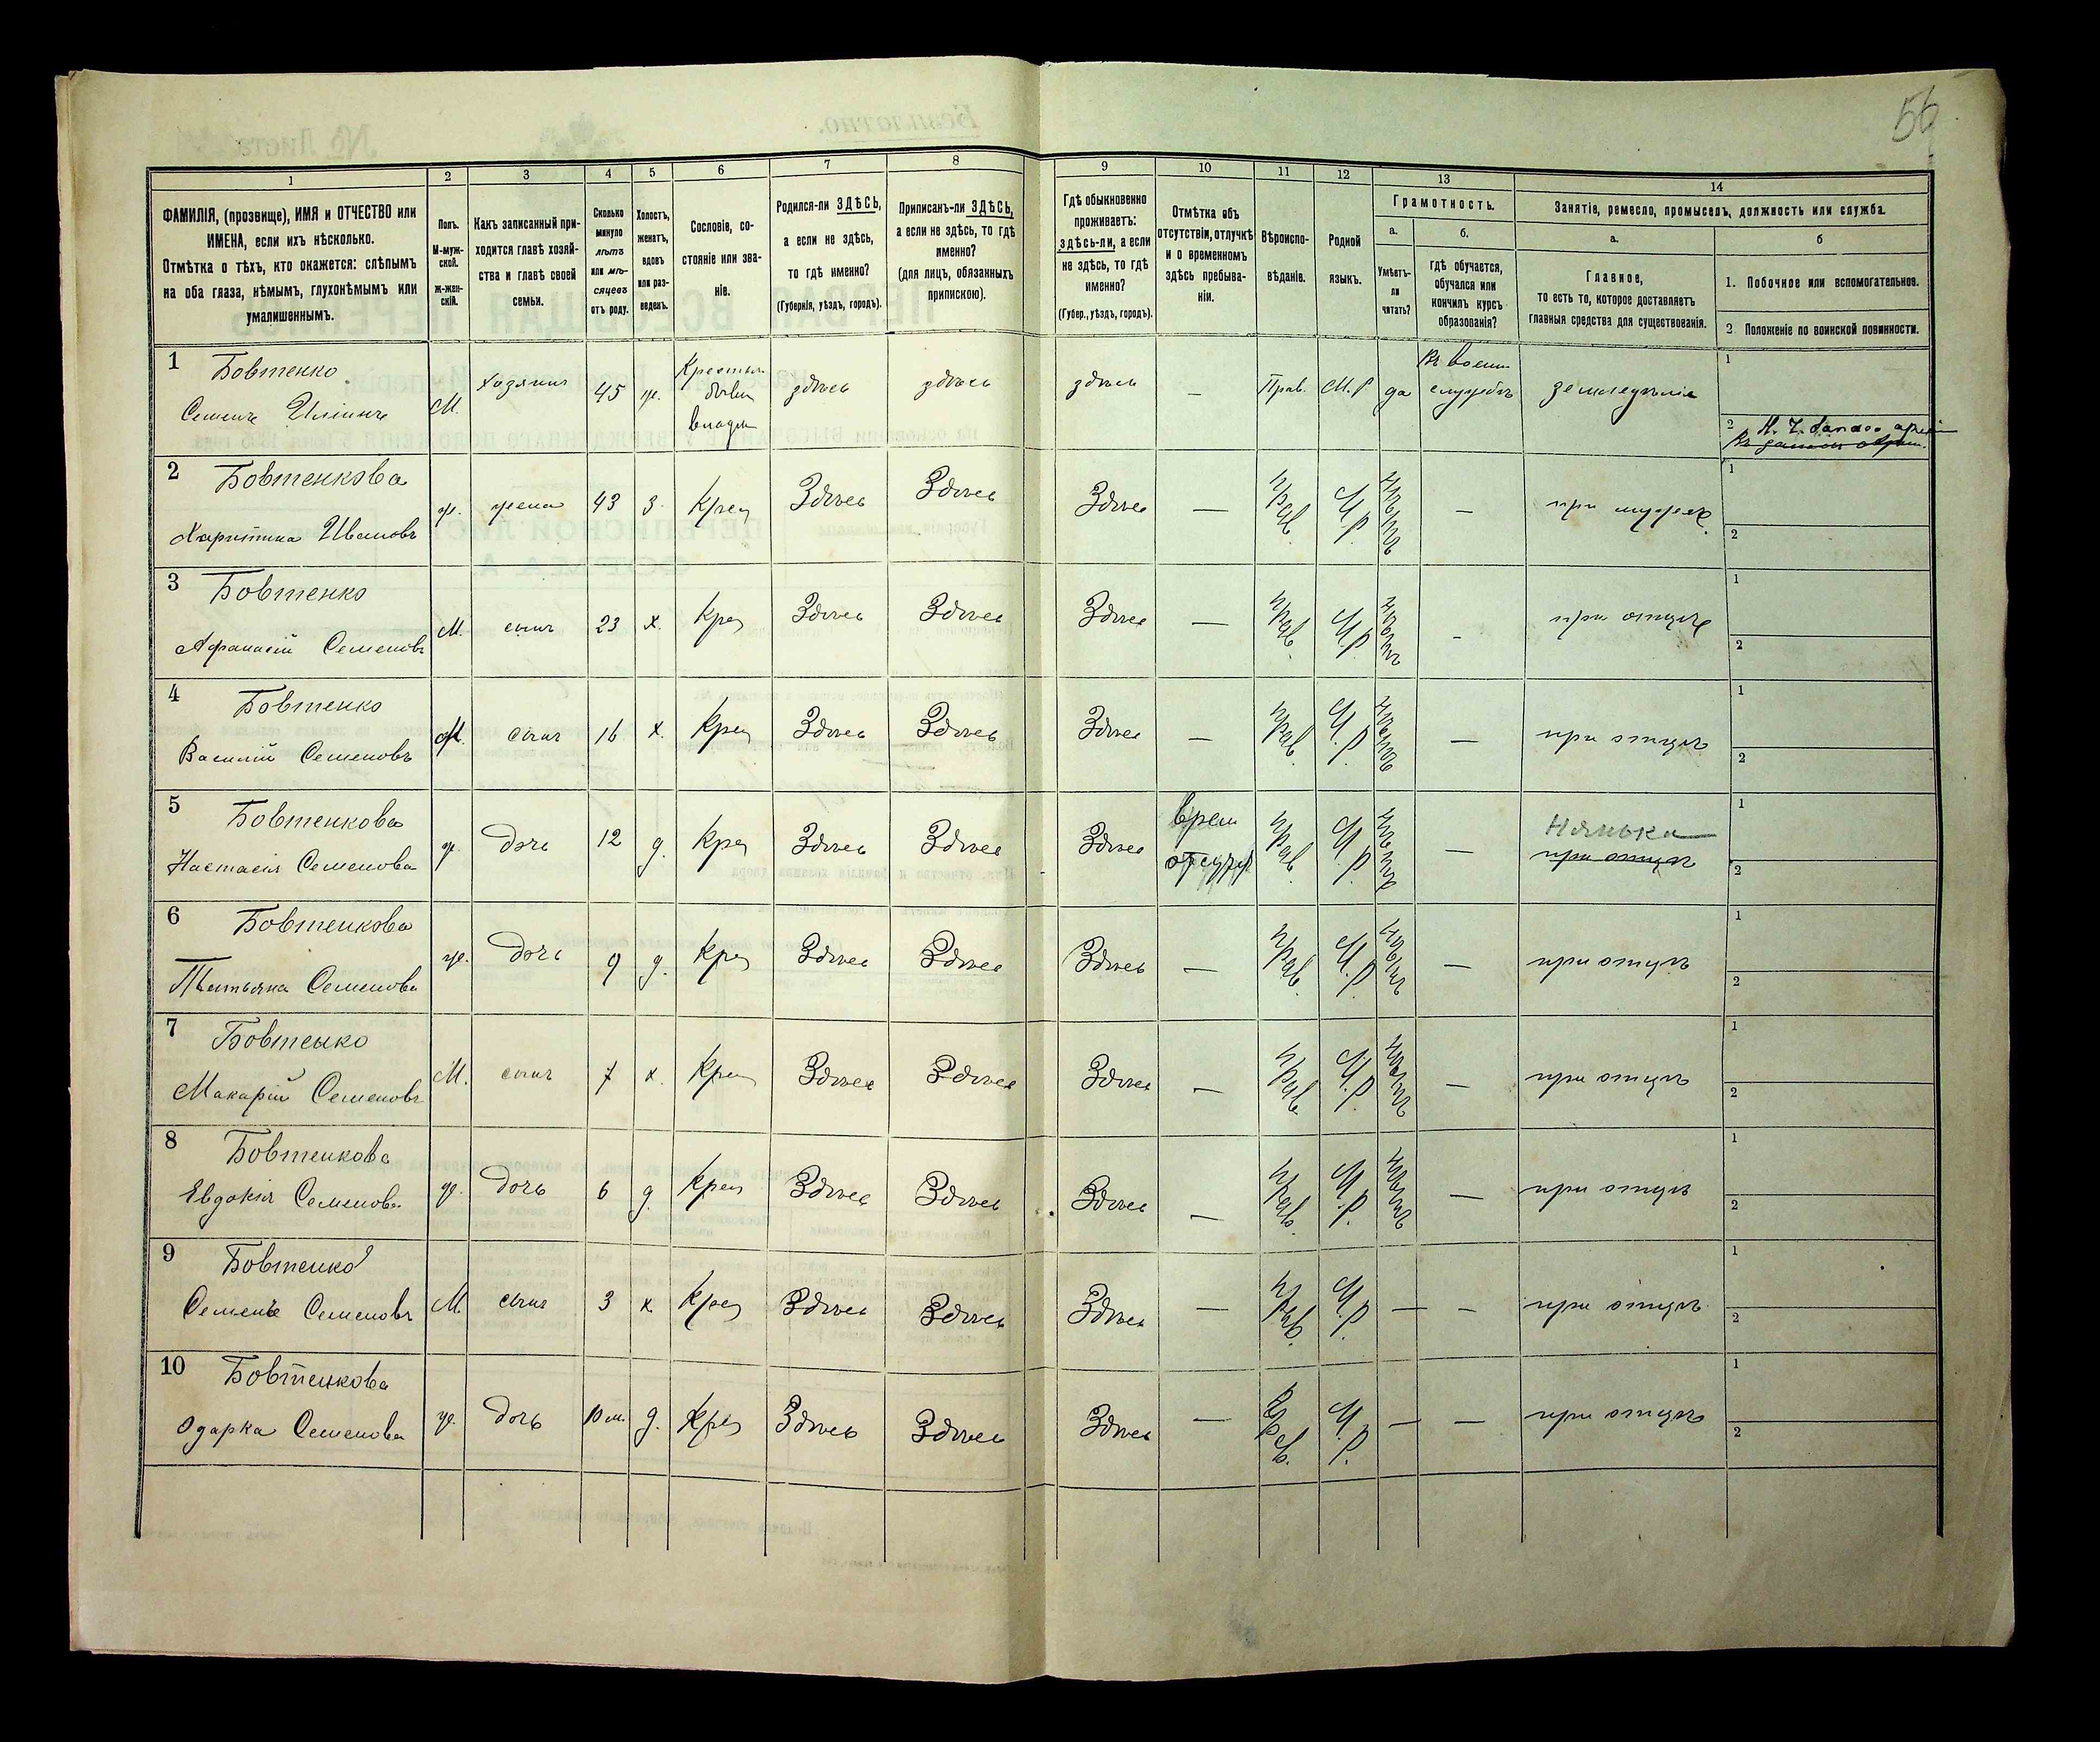 56
1 2 3 4 5 6 7 8 9 10 11 12 13 14
ФАМИЛІЯ, (прозвище), ИМЯ и ОТЧЕСТВО или
ИМЕНА, если ихъ нѣсколько.
Отмѣтка о тѣхъ, кто окажется: слѣпымъ
на оба глаза, нѣмымъ, глухонѣмымъ или
умалишеннымъ.
Полъ.
М-муж-
ской.
Ж-жен-
скій.
Какъ записанный при-
ходится главѣ хозяй-
ства и главѣ своей
семьи.
Сколько
минуло
лѣтъ
или мѣ-
сяцевъ
отъ роду.
Холостъ,
женатъ,
вдовъ
или раз-
веденъ.
Сословіе, со-
стояніе или зва-
ніе.
Родился-ли ЗДѢСЬ,
а если не здѣсь,
то гдѣ именно?
(Губернія, уѣздъ, городъ).
Приписанъ-ли ЗДѢСЬ,
а если не здѣсь, то гдѣ
именно?
(для лицъ, обязанныхъ
припискою).
Гдѣ обыкновенно
проживаетъ:
здѣсь-ли, а если
не здѣсь, то гдѣ
именно?
(Губер., уѣздъ, городъ).
Отмѣтка объ
отсутствіи, отлучкѣ
и о временномъ
здѣсь пребыва-
ніи.
Вѣроиспо-
вѣданіе.
Родной
языкъ.
Грамотность.
а.
Умѣетъ-
ли
читать?
б.
гдѣ обучается,
обучался или
кончилъ курсъ
образованія?
Занятіе, ремесло, промыселъ, должность или служба.
а.
Главное,
то есть то, которое доставляетъ
главныя средства для существованія.
б
1. Побочное или вспомогательное.
2 Положеніе по воинской повинности.
1 Бовтенко
Семенъ Ильинъ М. хозяинъ 45 ж. здѣсь здѣсь здѣсь — Прав. М.Р да земледѣліе 1
2
2 Бовтенкова
Харитина Иванов ж. жена 43 з. Крес Здѣсь Здѣсь Здѣсь — Прав. М.Р. — при мужѣ 1
2
3 Бовтенко
Афанасій Семеновъ М. сынъ 23 х. Крес Здѣсь Здѣсь Здѣсь — Прав. М.Р. - при отцѣ 1
2
4 Бовтенко
Василій Семеновъ М. сынъ 16 х. Крес Здѣсь Здѣсь Здѣсь — Прав. М.Р. — при отцѣ 1
2
5 Бовтенкова
Настасія Семенова ж. дочь 12 д. Крес Здѣсь Здѣсь Здѣсь врем Прав. М.Р. — Нянька 1
при отцѣ 2
6 Бовтенкова
Татьяна Семенова ж. дочь 9 д. Крес Здѣсь Здѣсь Здѣсь — Прав. М.Р. — при отцѣ 1
2
7 Бовтенко
Макарій Семеновъ М. сынъ 7 х. Крес Здѣсь Здѣсь Здѣсь — Прав. М.Р. — при отцѣ 1
2
8 Бовтенкова
Евдокія Семенова ж. дочь 6 д. Крес Здѣсь Здѣсь Здѣсь — Прав. М.Р. — при отцѣ 1
2
9 Бовтенко
Семенъ Семеновъ М. сынъ 3 х. Крес Здѣсь Здѣсь Здѣсь — Прав. М.Р. — — при отцѣ 1
2
10 Бовтенкова
Одарка Семенова ж. дочь 10 м. д. Крес Здѣсь Здѣсь Здѣсь — Прав. М.Р. — — при отцѣ 1
2